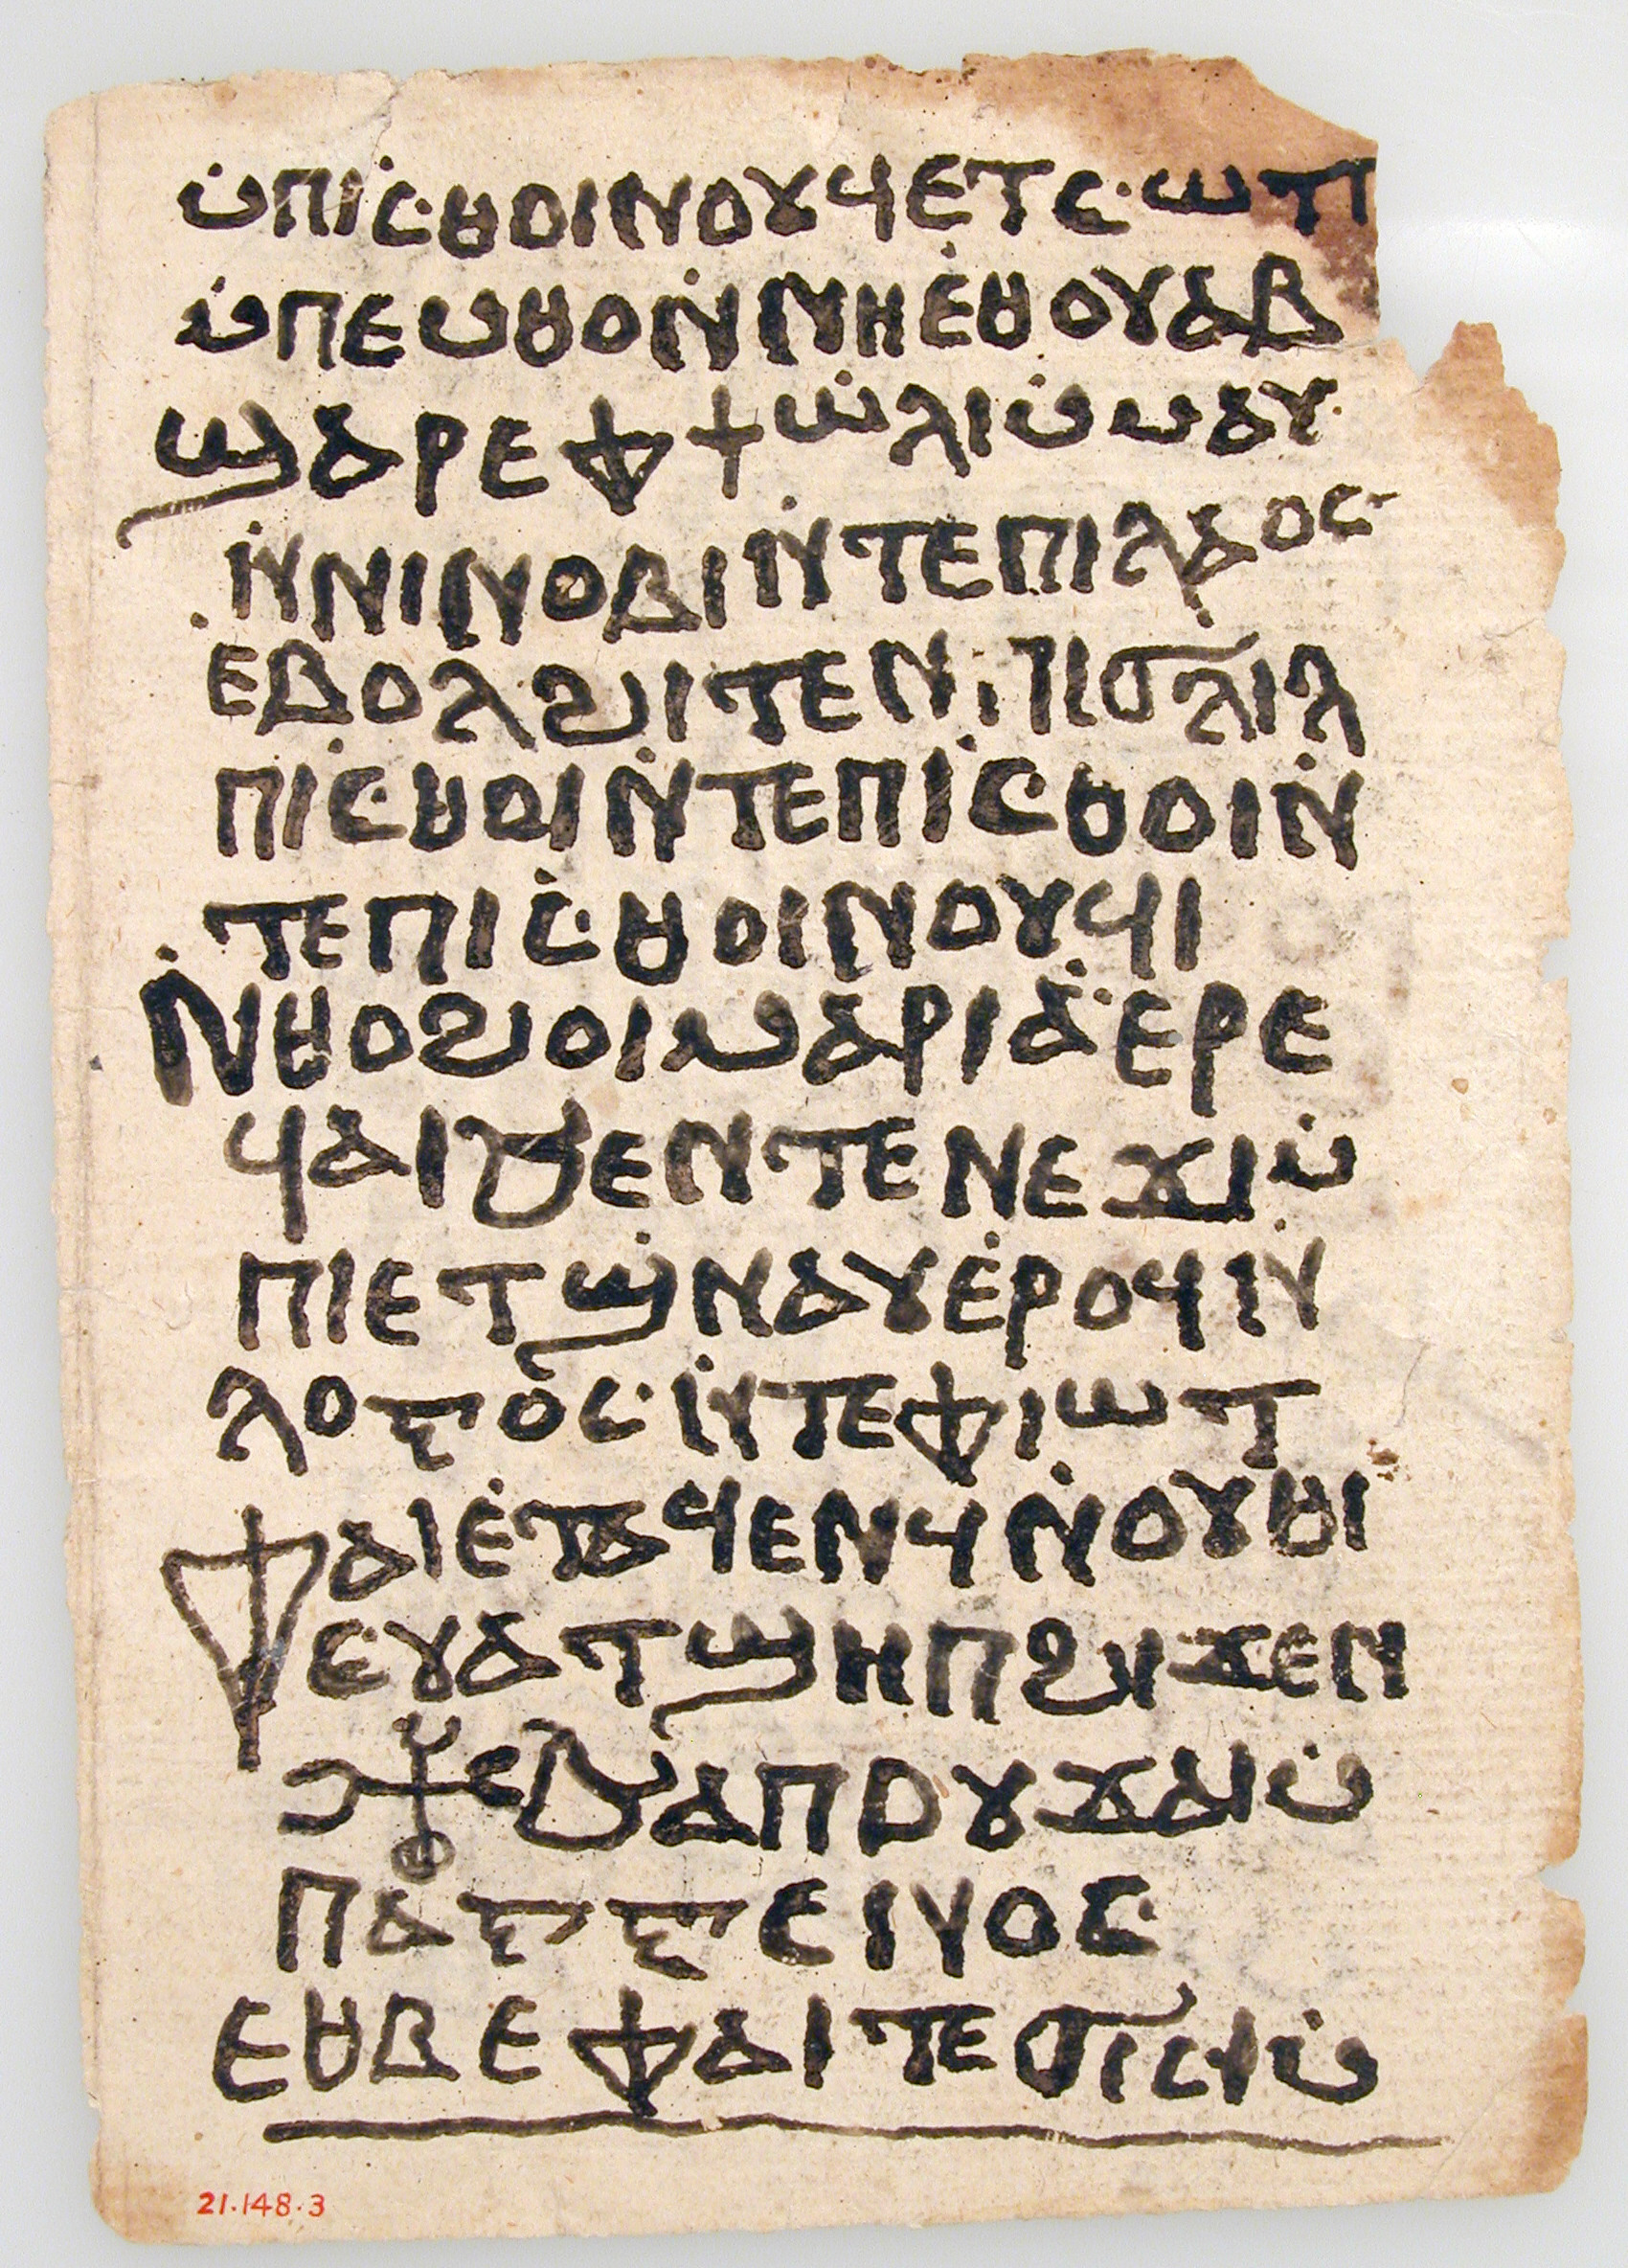 ⲙ̇ⲡⲓⲥⲑⲟⲓⲛⲟⲩϥⲉⲧⲥⲱⲧⲡ
ⲙ̇ⲡⲉⲙⲑⲟⲛ̇ⲛⲏⲉ̇ⲑⲟⲩⲁⲃ
ϣⲁⲣⲉⲫϯⲱ̇ⲗⲓⲙ̇ⲙⲁⲩ
ⲛ̇ⲛⲓⲛⲟⲃⲓⲛ̇ⲧⲉⲡⲓⲗⲁⲟⲥ
ⲉⲃⲟⲗϩⲓⲧⲉⲛⲡⲓϭⲗⲓⲗ
ⲡⲓⲥ̇ⲑⲟⲓⲛ̇ⲧⲉⲡⲓⲥ̇ⲑⲟⲓⲛ̇
ⲧⲉⲡⲓⲥ̇ⲑⲟⲓⲛⲟⲩϥⲓ
ⲛ̇ⲑⲟϩⲟⲓⲙⲁⲣⲓⲁ̇ⲉⲣⲉ
ϥⲁⲓϧⲉⲛⲧⲉⲛⲉϫⲓⲙ̇
ⲡⲓⲉⲧϣⲛⲁⲩⲉ̇ⲣⲟϥⲓⲛ
ⲗⲟⲅⲟⲥⲛ̇ⲧⲉⲫⲓⲱⲧ
ⲫⲁⲓⲉ̇ⲧⲁϥⲉⲛϥⲛ̇ⲟⲩⲑⲓ
ⲥⲩⲁⲧϣⲏⲡϩⲓϫⲉⲛ
ϧⲁⲡⲟⲩϫⲁⲓⲙ̇
ⲡⲁⲅⲅⲉⲓⲛⲟⲥ
ⲉⲑⲃⲉⲫⲁⲓⲧⲉϭⲓⲥⲓⲙ̇
21.148.3